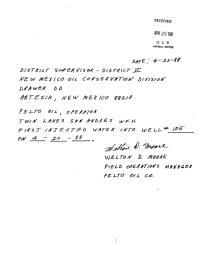 RECEIVED
APR 25 '88
O. C. D.
ARTESIA, OFFICE
DATE: 4-22-88
DISTRICT SUPERVISOR - DISTRICT II
NEW MEXICO OIL CONSERVATION DIVISION
DRAWER DD
ARTESIA, NEW MEXICO 88210
PELTO OIL, OPERATOR
TWIN LAKES SAN ANDRES WFU
FIRST INJECTED WATER INTO WELL # 106
ON 4 - 20 - 88.
Welton D. Moore
WELTON D MOORE
FIELD OPERATIONS MANAGER
PELTO OIL CO.